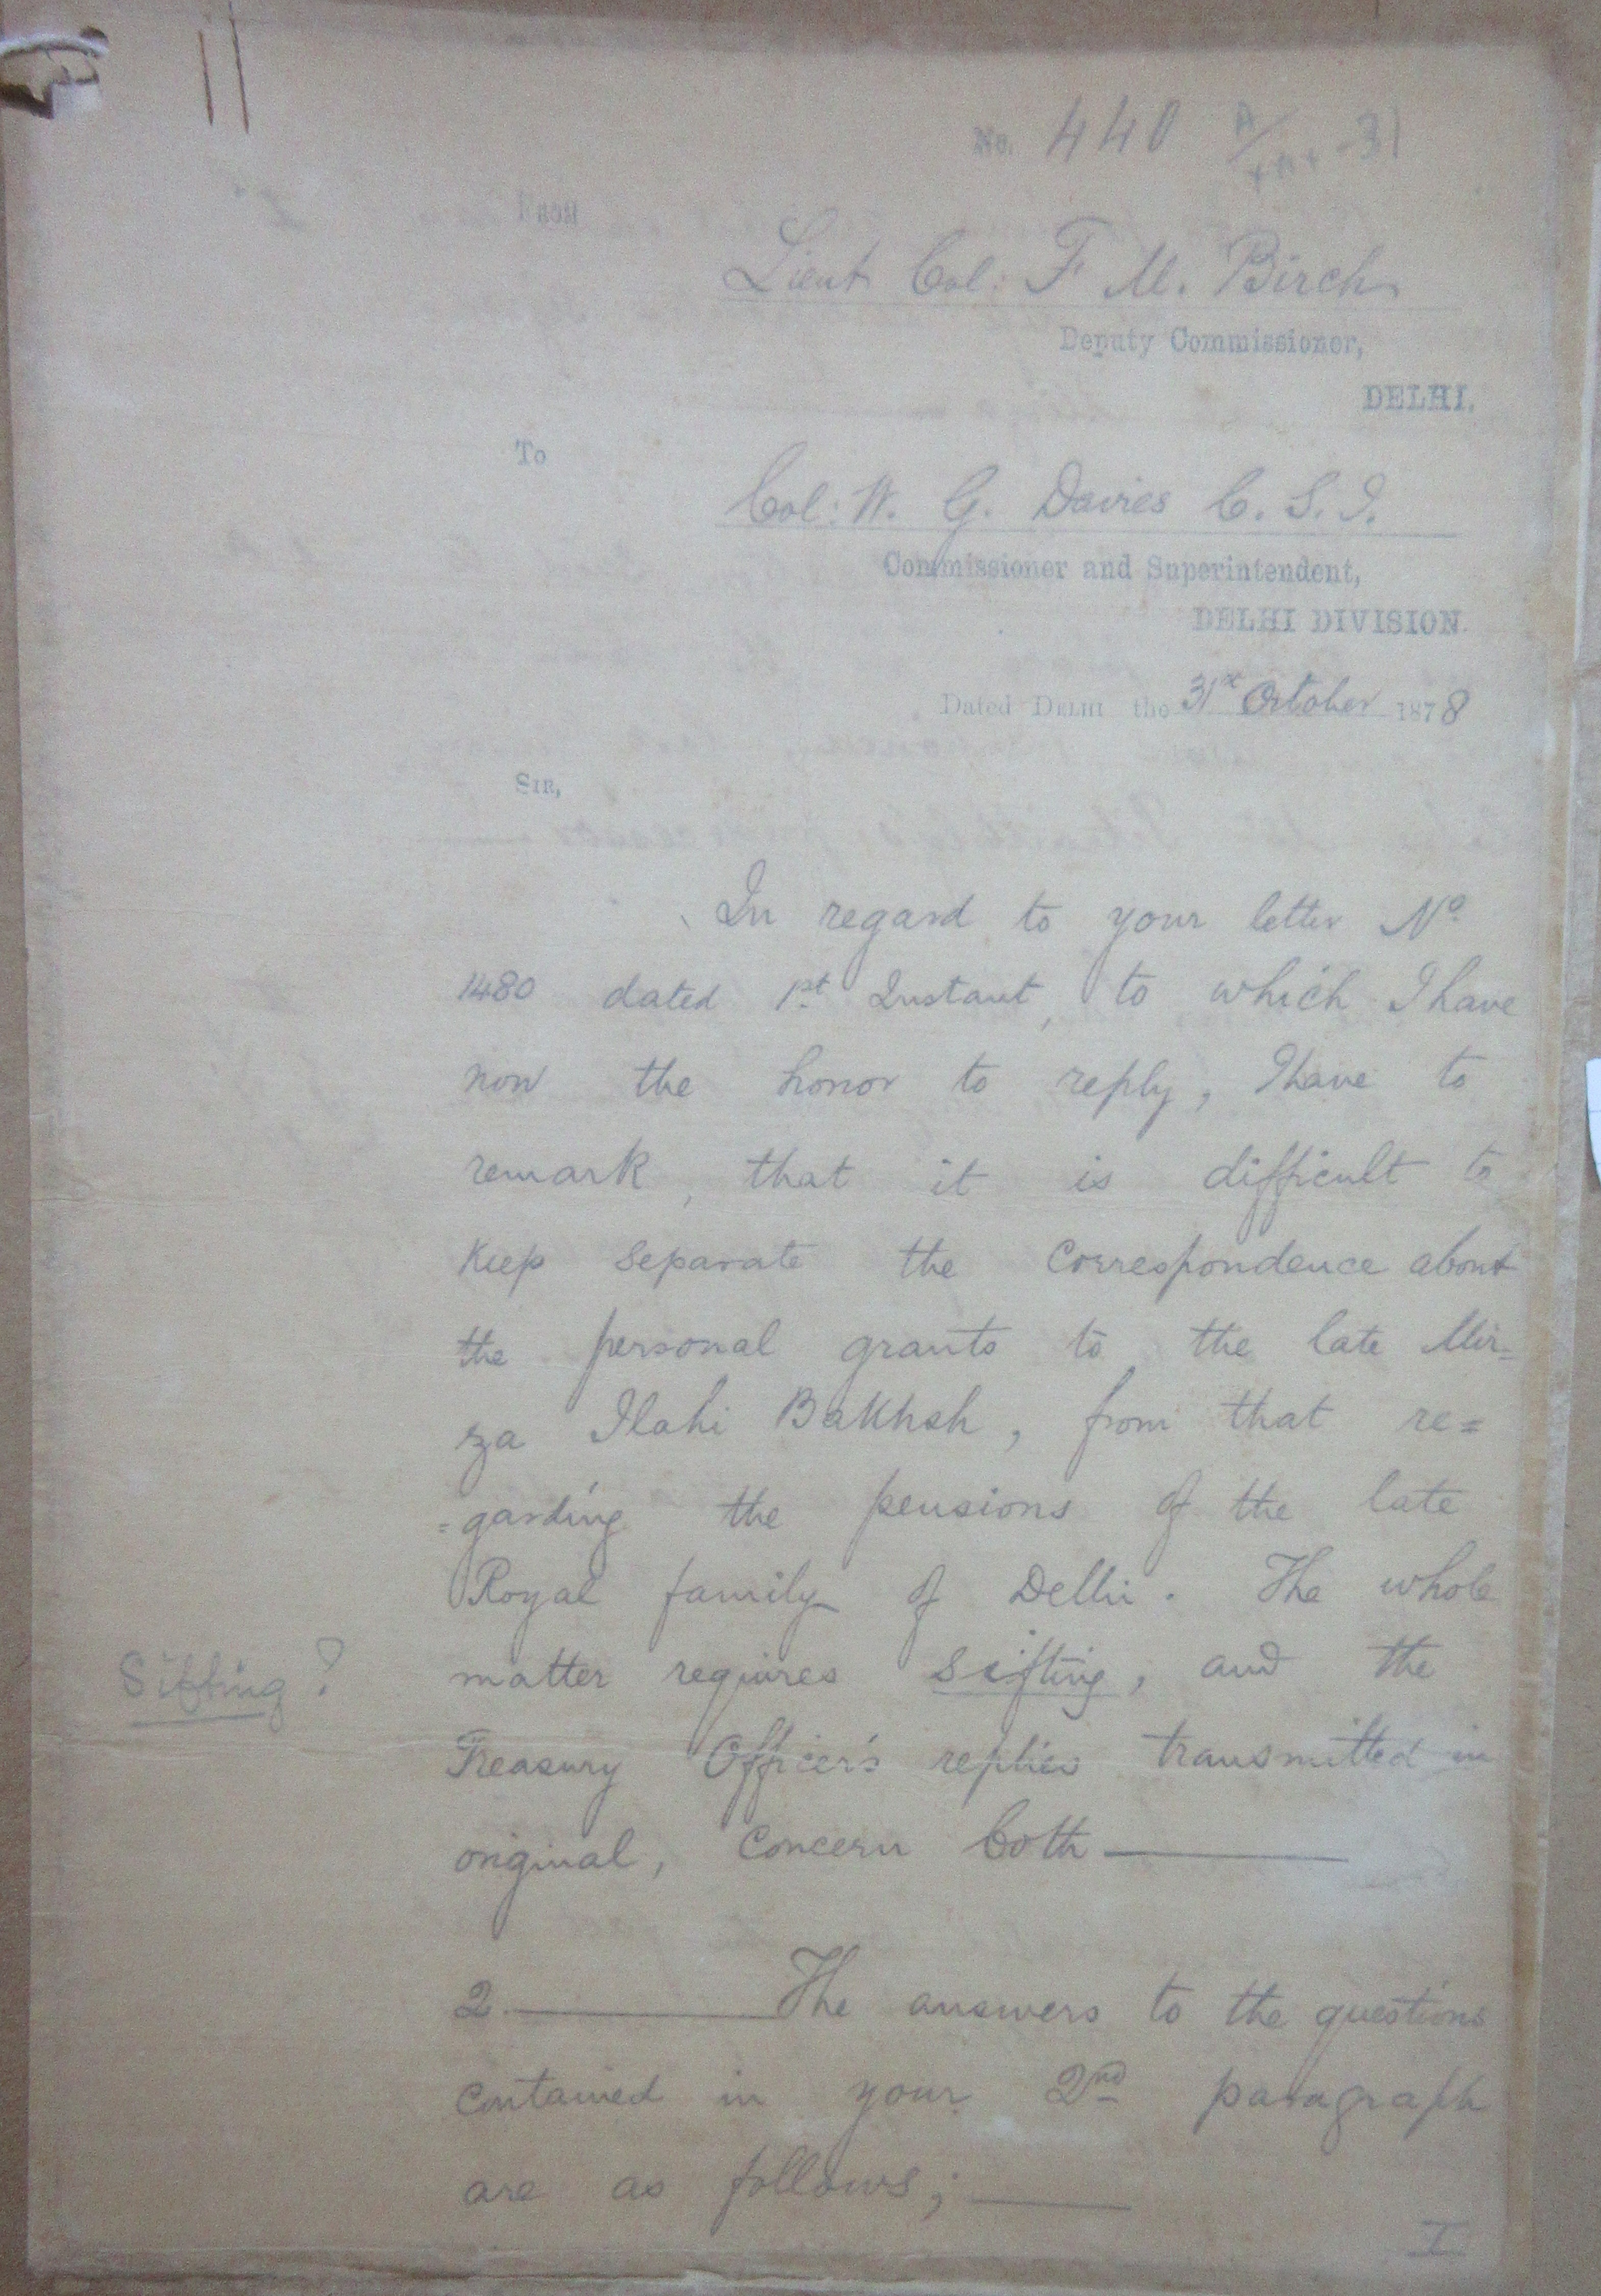 No. 440
FROM
Lieut Col: F M. Birch
Deputy Commissioner,
DELHI.
To
Col: W. G. Davies C. S. I.
Commissioner and Superintendent,
DELHI DIVISION.
Dated DELHI the 31st October 1878
SIR,
In regard to your letter No
1480 dated 1st Instant, to which I have
now the honor to reply, I have to
remark, that it is difficult to
keep separate the correspondence about
the personal grants to the late Mir=
za Ilahi Bakhsh, from that re=
=garding the pensions of the late
Royal family of Delhi. The whole
Sifting?
matter requires sifting, and the
Treasury Officer's replies transmitted in
original, concern both
2. The answers to the questions
contained in your 2nd paragraph
are as follows;
I